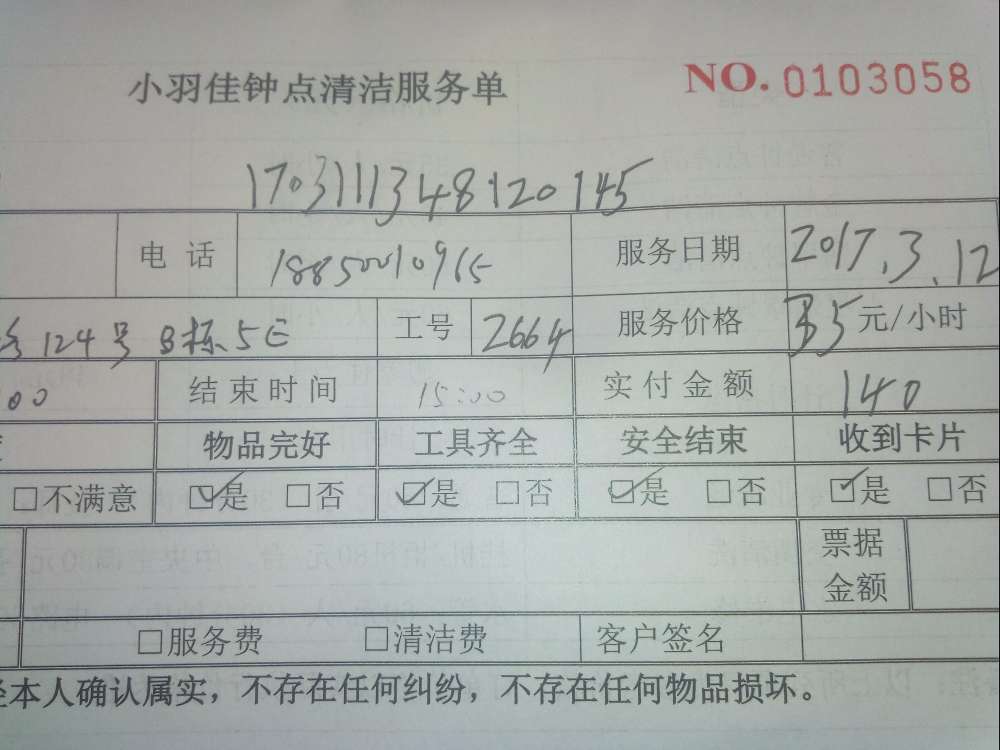 小羽佳钟点清洁服务单 NO. 0103058
1703111348120145
电 话 18850010965 服务日期 2017.3.12
124号B栋5E 工号 2664 服务价格 35元/小时
00 结束时间 15:00 实付金额 140
物品完好 工具齐全 安全结束 收到卡片
□不满意 ☑是 □否 ☑是 □否 ☑是 □否 ☑是 □否
票据
金额
□服务费 □清洁费 客户签名
本人确认属实，不存在任何纠纷，不存在任何物品损坏。